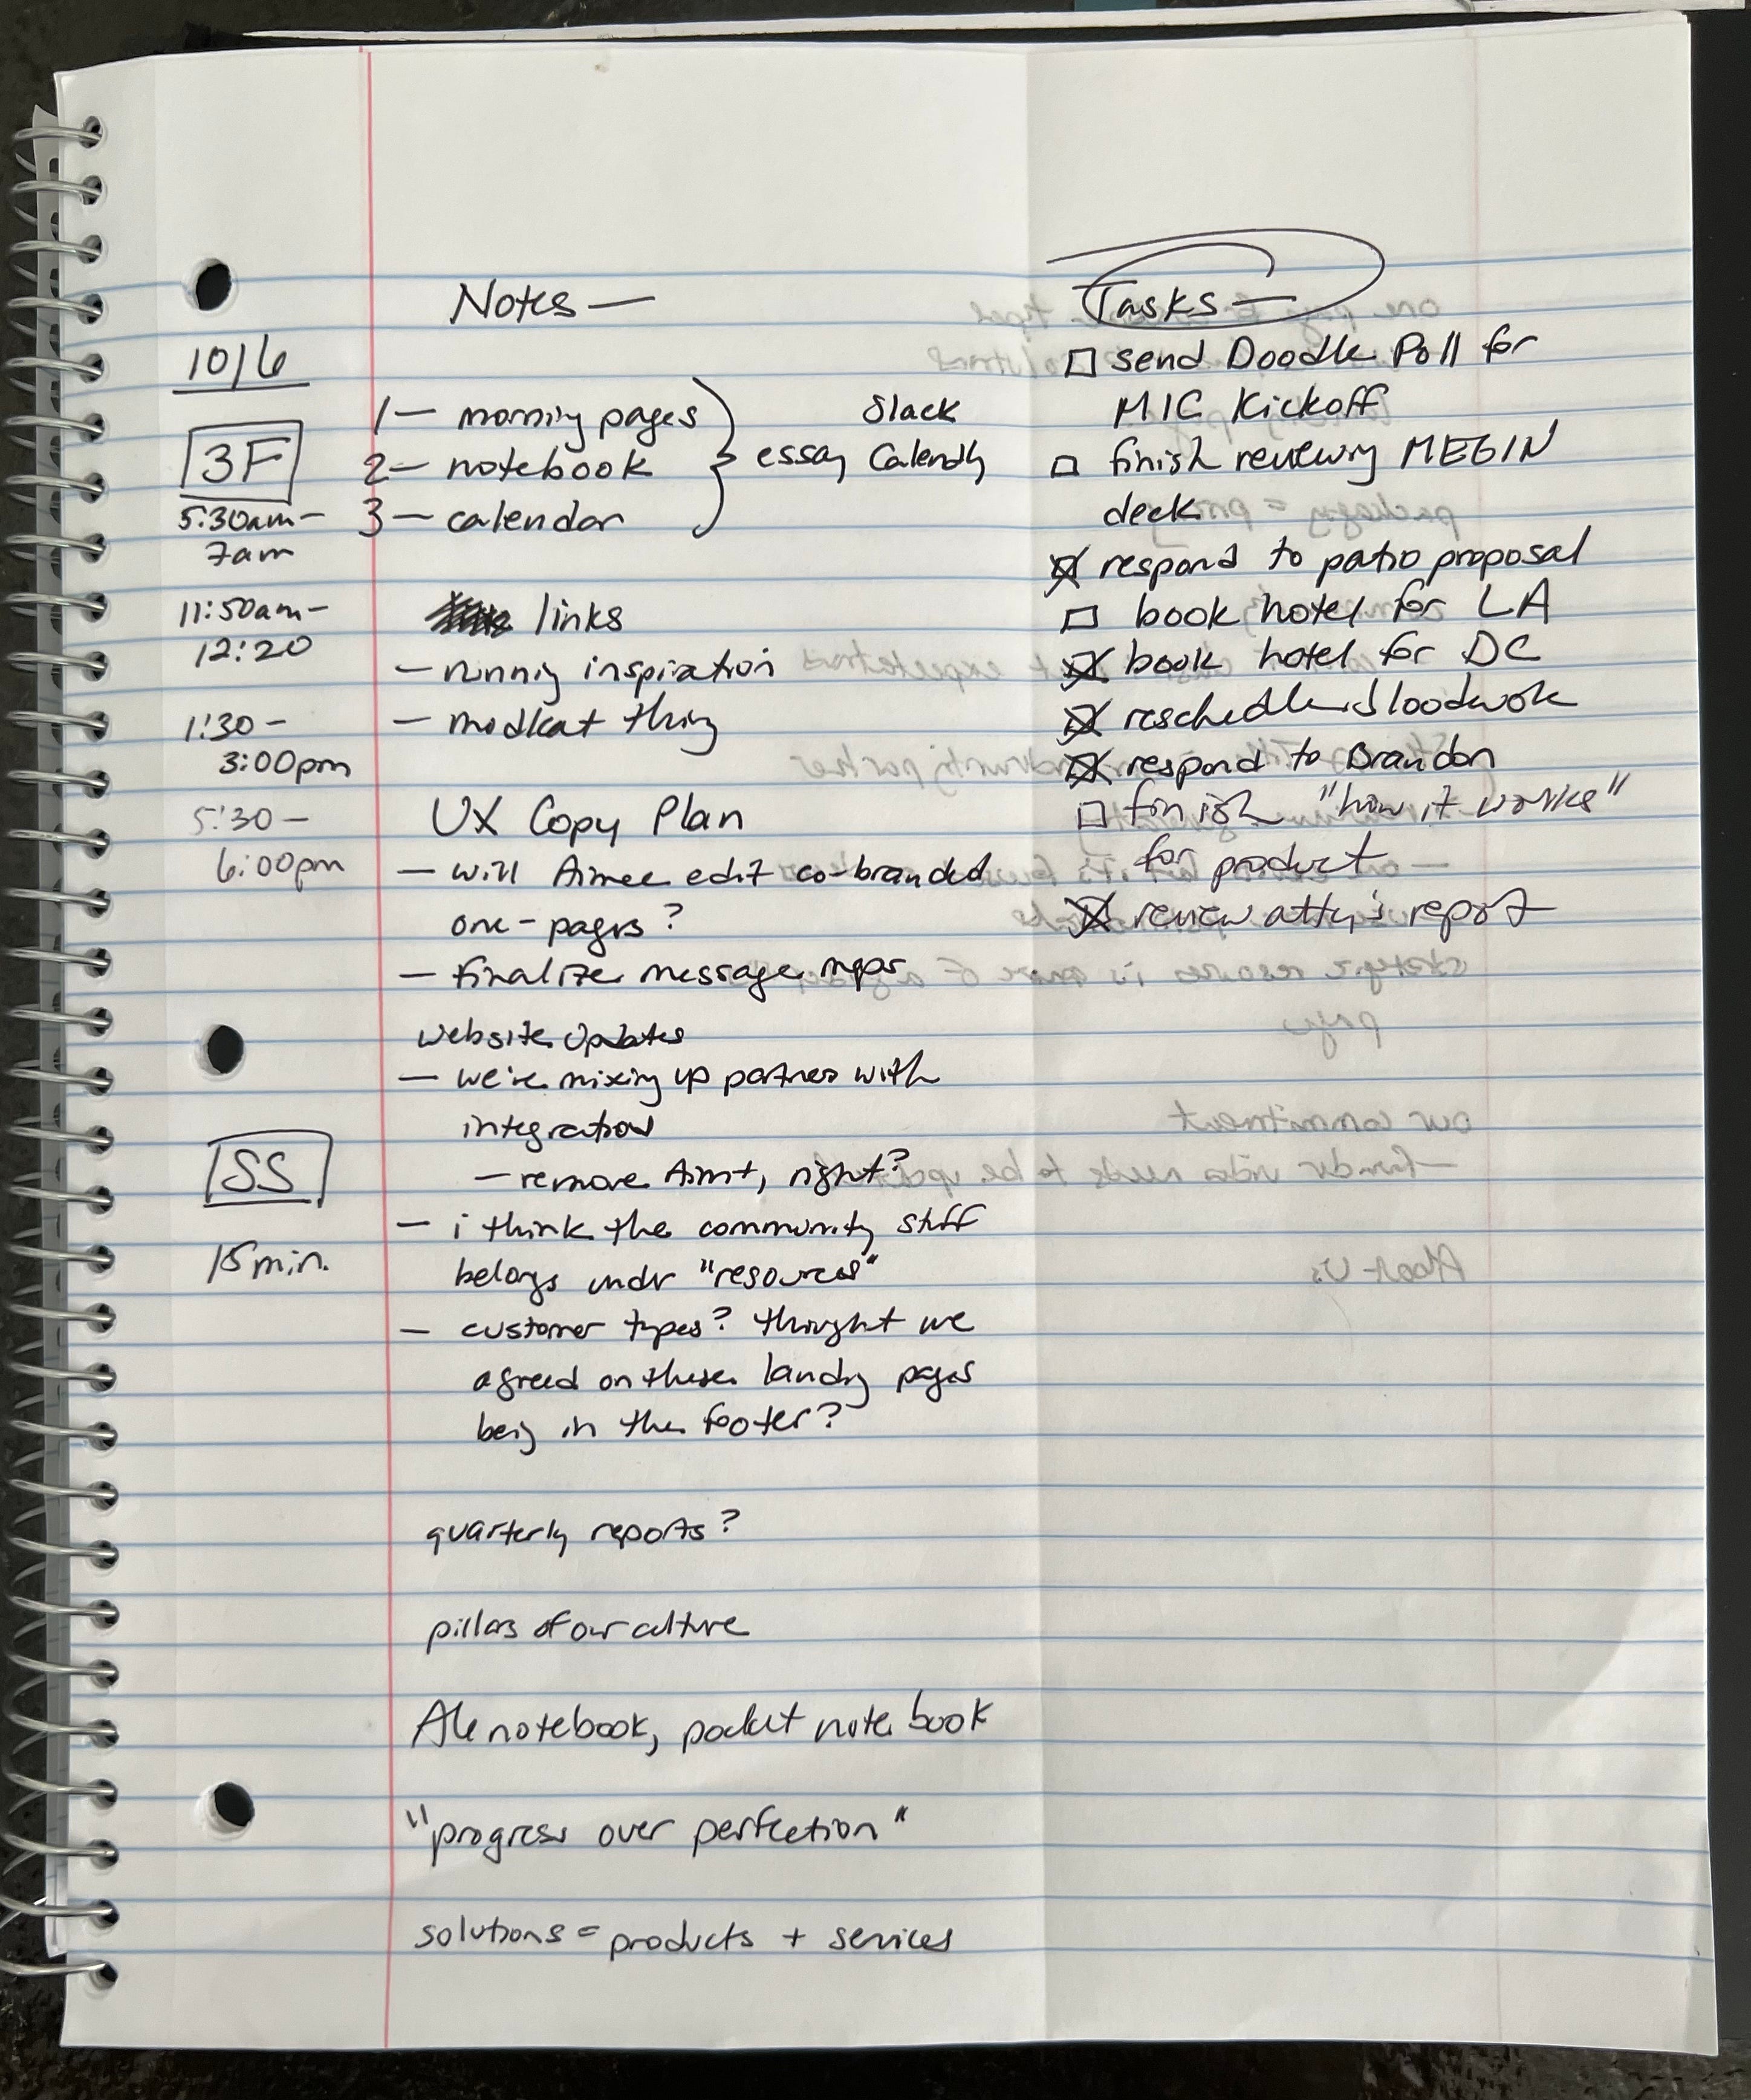 10/6
3F
5:30am-
7am
11:50am-
12:20
1:30-
3:00pm
5:30-
6:00pm
SS
15 min.
Notes —
1- morning pages
2- notebook
3- calendar
essay
Slack
Calendly
links
- running inspiration
- modkat thing
UX Copy Plan
- will Aimee edit co-branded
one-pagers?
- finalize message maps
website updates
- we're mixing up partners with
integrations
- remove Aimt, right?
- i think the community stuff
belongs under "resources"
- customer types? thought we
agreed on these landing pages
being in the footer?
quarterly reports?
pillars of our culture
notebook, pocket notebook
"progress over perfection"
solutions = products + services
Tasks —
send Doodle Poll for
MIC Kickoff
finish reviewing MEGIN
deck
respond to patio proposal
book hotel for LA
book hotel for DC
reschedule bloodwork
respond to Brandon
finish "how it works"
for product
review atty's report